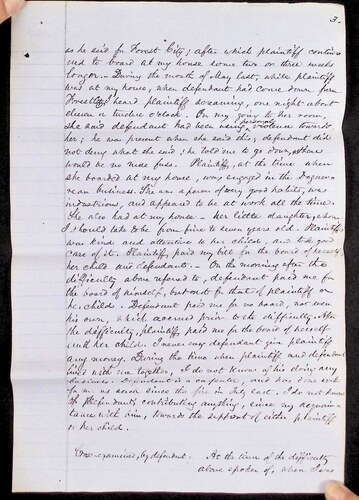 3.
as he said for Forest City; after which plaintiff contin-
ued to board at my house some two or three weeks
longer. - During the month of May last, while plaintiff
was at my house, when defendant had come down from
Forest City heard plaintiff screaming, one night about
eleven or twelve o'clock. On my going to her room,
she said defendant had been using personal violence towards
her; he was present when she said this; defendant did
not deny what she said; he told me to go down, there
would be no more fuss. Plaintiff, at the time when
she boarded at my house, was engaged in the Daguer-
rean business. She was a person of very good habits, was
industrious, and appeared to be at work all the time.
She also had at my house - her little daughter, whom
I should take to be from five to seven years old. Plaintiff
was kind and attentive to her child, and took good
care of it. Plaintiff, paid my bill for the board of herself
her child and defendant. - On the morning after the
difficulty above referred to, defendant paid me for
the board of himself, but not for that of plaintiff or
her child. Defendant paid me for no board, not even
his own, which accrued prior to the difficulty. After
the difficulty, plaintiff, paid me for the board of herself
and her child. I never saw defendant give plaintiff
any money. During the time when plaintiff and defendant
lived with me together, I do not know of his doing any
business. Defendant is a carpenter, and has done work
for me as since the fire in July last. I do not know
of defendant's contributing anything, since my acquain-
tance with him, towards the support of either plaintiff
or her child.
Cross-examined, by defendant. At the time of the difficulty
above spoken of, when I was